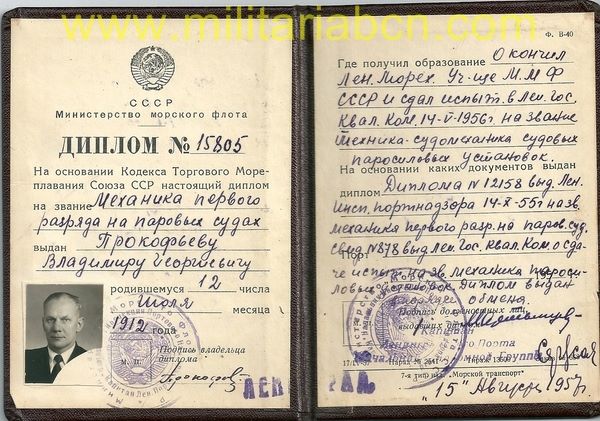 www.militariabcn.com
СССР
Министерство морского флота
ДИПЛОМ № 15805
На основании Кодекса Торгового Море-
плавания Союза ССР настоящий диплом
на звание Механика первого
разряда на паровых судах
выдан Прокофьеву
Владимиру Георгиевичу
родившемуся 12 числа
Июля месяца
1912 года
М. П.
Подпись владельца
диплома
Ф. В-40
Где получил образование Окончил
Лен. Морех. Уч-ще М.М.Ф
СССР и сдал испыт. в Лен. Гос.
Квал. Ком. 14-VI-1956г на звание
техника-судомеханика судовых
паросиловых установок.
На основании каких документов выдан
диплом Диплома N 12158 выд. Лен.
Инсп. портнадзора 14-X-55г на зв.
механика первого разр. на паров. суд.
свид N 878 выд. Лен. Гос. Квал. Ком. о сда-
че испыт. на зв. механика пароси-
ловых установок. Диплом выдан
в порядке обмена.
Подписи должностных лиц,
выдавших диплом
Капитан
Порта
7-я тип. изд. "Морской транспорт"
"15" Августа 1957г.